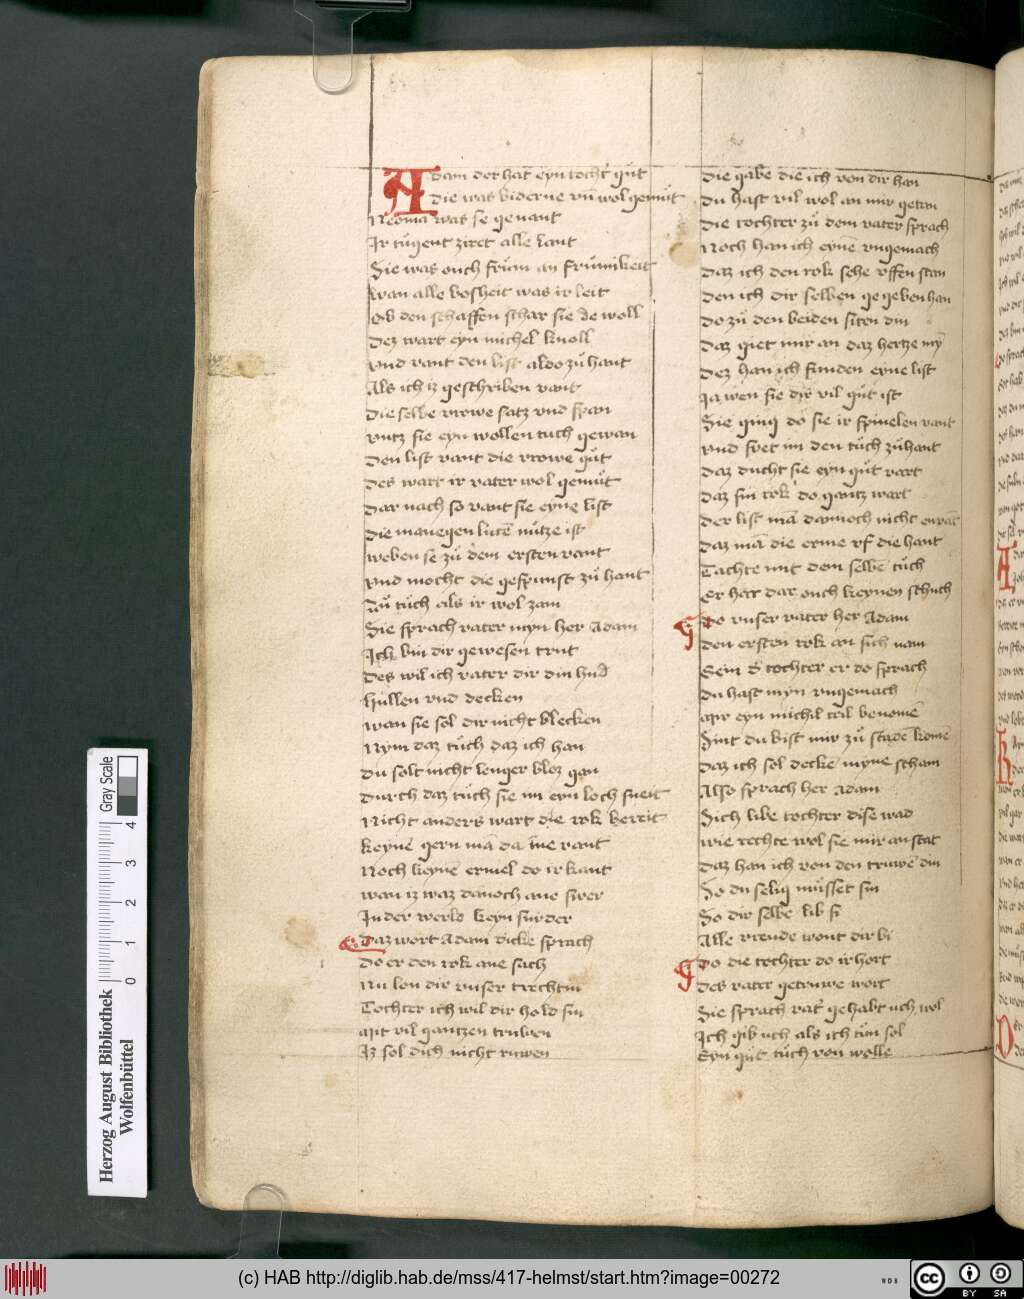 Adam der hat eyn tocht gůt
die was biderue vn̄ wol gemůt
Neoma was se genant
Ir tůgent ziret alle lant
Sie was ouch frům an frůmikeit
wan alle bosheit was ir leit
Ob den schaffen schar sie de woll
Dez wart eyn michel knoll
vnd vant den list aldo zů hant
Als ich iz geschriben vant
Die selbe vrowe satz vnd span
vntz sie eyn wollen tuch gewan
Den list vant die vrowe gůt
Des wart ir vater wol gemůt
Dar nach so vant sie eyne list
Die manegen lutē nůtze ist
weben se zů dem ersten vant
vnd mocht die gespunst zů hant
Zů tůch als ir wol zam
Sie sprach vater myn her Adam
Ich bin dir gewesen trut
Des wil ich vater dir din hud
Hullen vnd decken
wan sie sol dir nicht blecken
Nym daz tůch daz ich han
Du solt nicht lenger bloz gan
Durch daz tůch sie im eyn loch sneit
Nicht anders wart die rok bereit
keynē gern mā da ine vant
Noch keynē ermel do ir kant
wan iz waz dānoch ane
In der werld keyn surder
Daz wort Adam dicke sprach
Do er den rok ane sach
Nu lon dir vnser trechtin
Tochter ich wil dir hold sin
Mit vil gantzen truwen
Iz sol dich nicht ruwen
Die gabe die ich von dir han
Du hast vil wol an mir getan
Die tochter zů dem vater sprach
Noch han ich eynē vngemach
Daz ich den rok sehe vffen stan
Den ich dir selben gegeben han
Do zů den beiden siten din
Daz giet mir an daz hertze mȳ
Dez han ich funden eyne list
Ja wen sie dir vil gůt ist
Sie ging do sie ir spinelen vant
vnd sūet im den tůch zů hant
Daz ducht sie eyn gůt vart
Daz sin rok do gantz wart
Der list mā dannoch nicht envāt
Daz mā die erme vf die hant
machte mit dem selbē tůch
Er hat dar ouch keynen schuch
Do vnser vater her Adam
den ersten rok an sich nam
Sein d' tochter er do sprach
Du hast myn vngemach
Mir eyn michil teil benomē
Sint du bist mir zů stade komē
Daz ich sol deckē myne scham
Also sprach her Adam
Sich libe tochter dise wad
wie rechte wol sie mir an stat
Daz han ich von den truwē din
So du selig můsset sin
So dir selbe lib si
Alle vreude wont dir bi
Do die tochter do ir hort
des vater getruwe wort
Sie sprach vat' gehabt uch wol
Ich gib uch als ich tůn sol
Eyn gůt tůch von wolle
Gray Scale
0 1 2 3 4
Herzog August Bibliothek
Wolfenbüttel
(c) HAB http://diglib.hab.de/mss/417-helmst/start.htm?image=00272
WDB
cc
BY SA